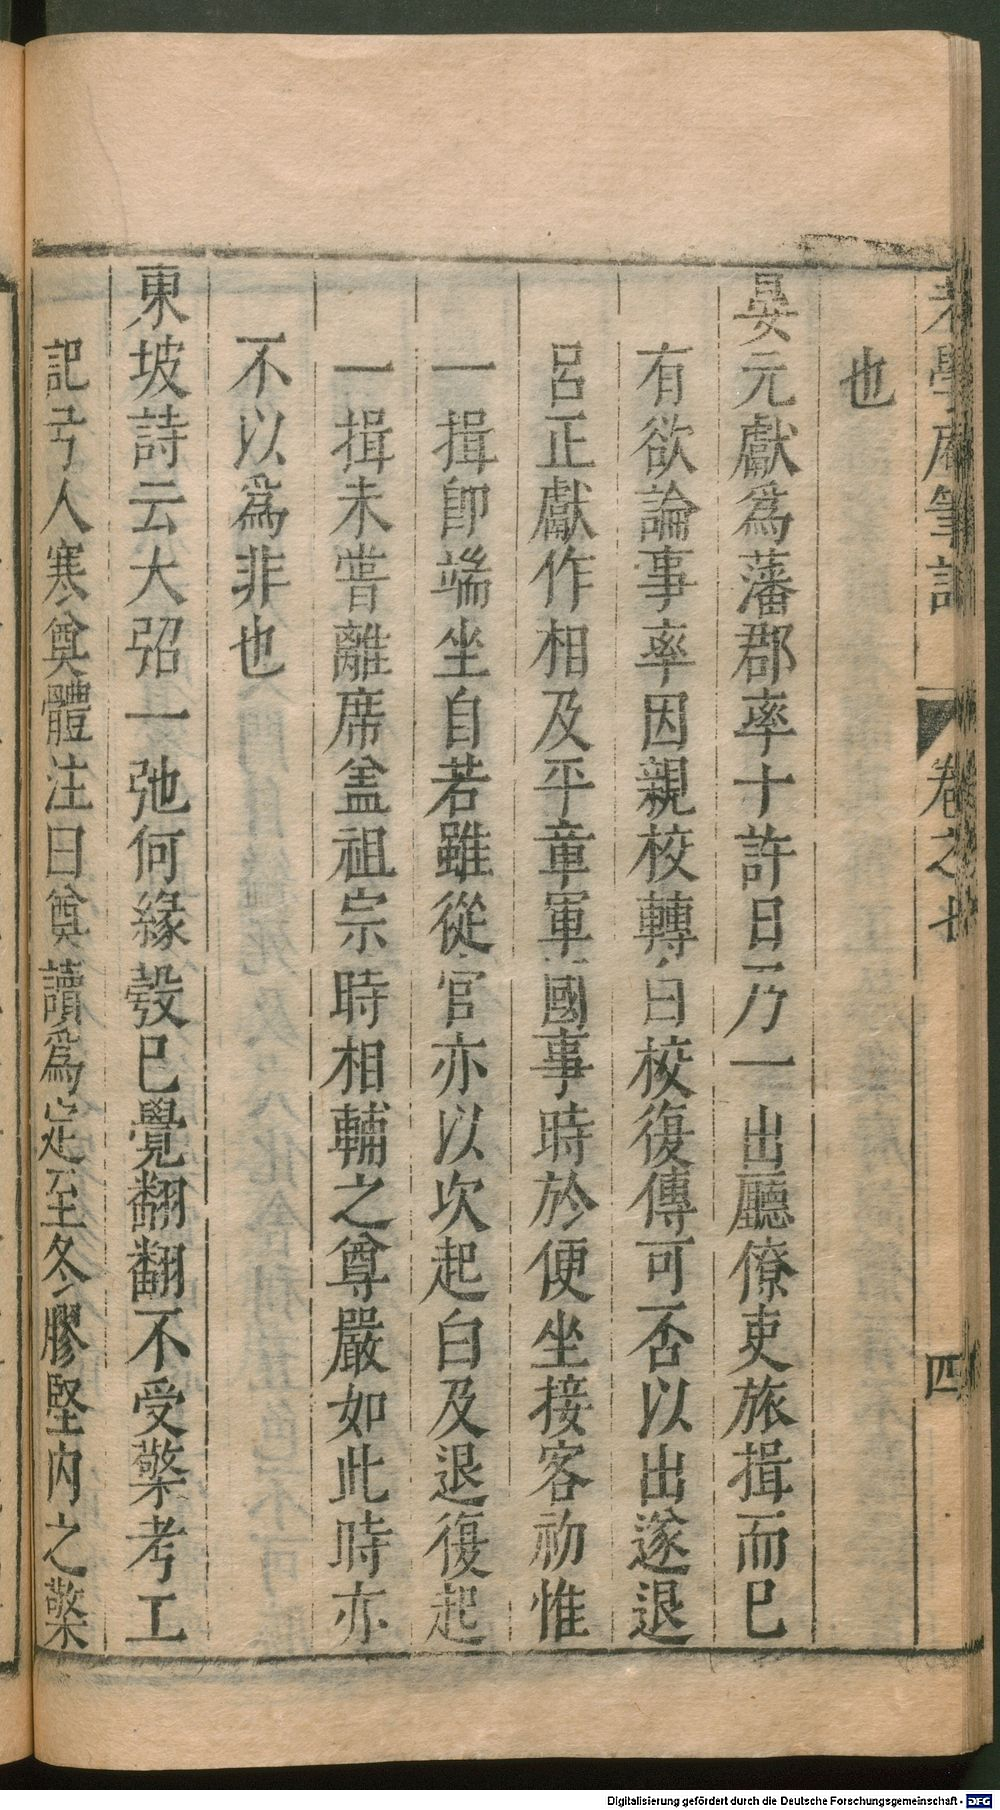 老學庵筆記 卷之七 四
也
晏元獻爲藩郡率十許日乃一出廳僚吏旅揖而已
有欲論事率因親校轉白校復傳可否以出遂退
呂正獻作相及平章軍國事時於便坐接客初惟
一揖卽端坐自若雖從官亦以次起白及退復起
一揖未嘗離席盖祖宗時相輔之尊嚴如此時亦
不以爲非也
東坡詩云大弨一弛何緣彀已覺翻翻不受檠考工
記弓人寒奠體注曰奠讀爲定至冬膠堅内之檠
Digitalisierung gefördert durch die Deutsche Forschungsgemeinschaft - DFG